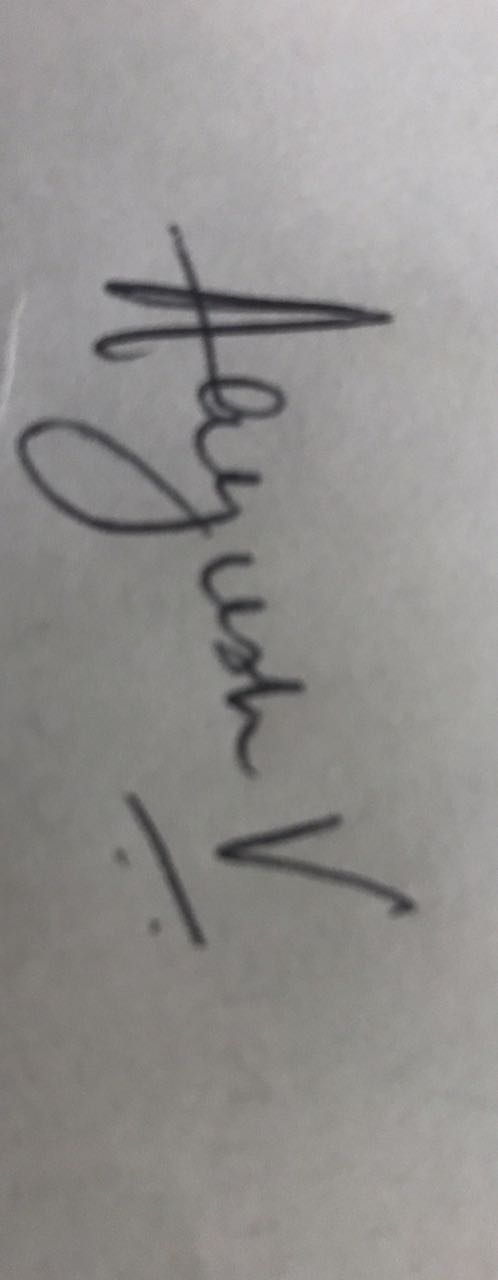 Aayush V